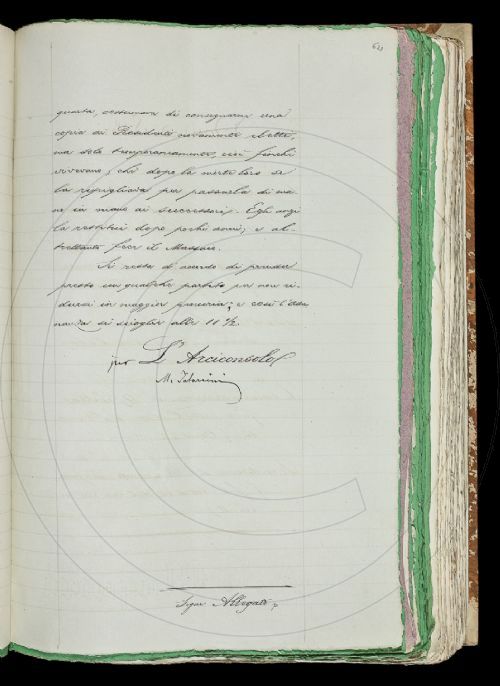 questa, costumava di consegnarne una
copia ai Presidenti novamente eletti,
ma solo temporaneamente, cioè finchè
vivevano; chè dopo la morte loro se
la ripigliava per passarla di ma-
no in mano ai successori. Egli anzi
la restituì dopo pochi anni; e al-
trettanto fece il
Si resta d'accordo di prender
presto un qualche partito per non ri-
dursi in maggior penuria; e così l'adu-
nanza si scioglie alle 11 ½.
per L'Arciconsolo
M. Tabarrini
Segue Allegato